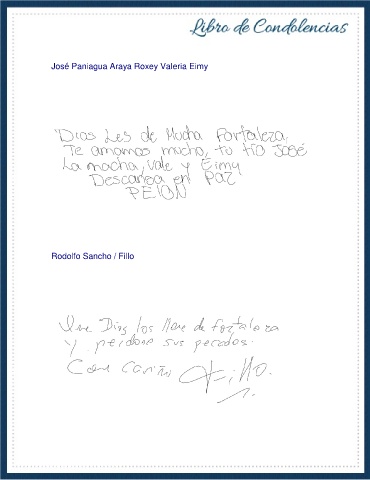 Libro de Condolencias
José Paniagua Araya Roxey Valeria Eimy
Dios Les de Mucha Fortaleza,
Te amamos mucho, tu tío José
La macha, Vale y Eimy
Descansa en Paz
PEION
Rodolfo Sancho / Fillo
Que Dios los llene de fortaleza
y perdone sus pecados.
Con Cariño Fillo.